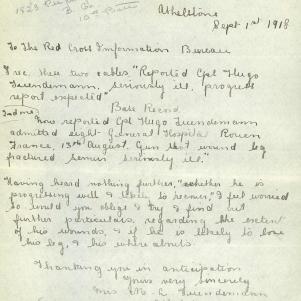 1523
B. Co
10th Batt
Athelstone
Sept 1st 1918
To The Red Cross Information Bureau
I rec. these two cables, "Reported Cpl Hugo
Tuendemann, seriously ill, progress
report expected"
Base Record
2nd one
Now reported Cpl Hugo Tuendemann
admitted eight General Hospital Rouen
France, 13th August. Gun shot wound leg
fractured femur seriously ill."
Having heard nothing further, "whether he is
progressing well & likely to recover," I feel worried
so would you oblige & try & find out
further particulars, regarding the extent
of his wounds, & if he is likely to lose
his leg, & his whereabouts.
Thanking you in anticipation
Yours very sincerely
Mrs